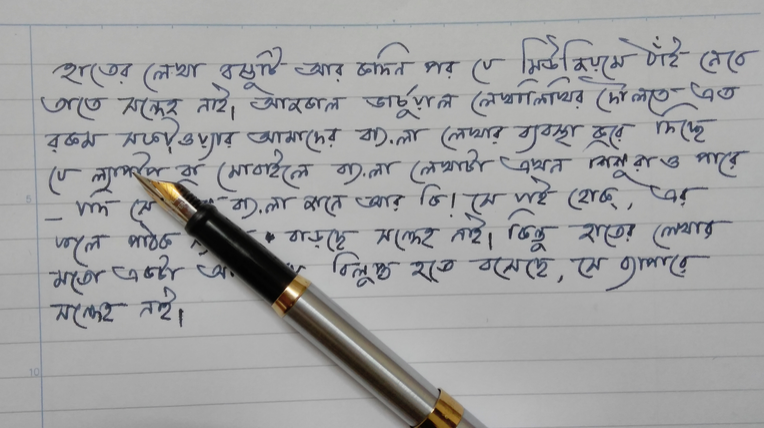 হাতের লেখা বস্তুটি আর কদিন পর যে মিউজিয়মে ঠাঁই নেবে
তাতে সন্দেহ নাই। আজকাল ভার্চুয়াল লেখালিখির দৌলতে এত
রকম সফ্টওয়্যার আমাদের বাংলা লেখার ব্যবস্থা করে দিচ্ছে
যে ল্যাপটপ বা মোবাইলে বাংলা লেখাটা এখন শিশুরাও পারে
– যদি সে বাংলা জানে আর কি! সে যাই হোক, এর
ফলে পাঠক বাড়ছে সন্দেহ নাই। কিন্তু হাতের লেখার
মতো একটা বিলুপ্ত হতে বসেছে, সে ব্যাপারে
সন্দেহ নাই।